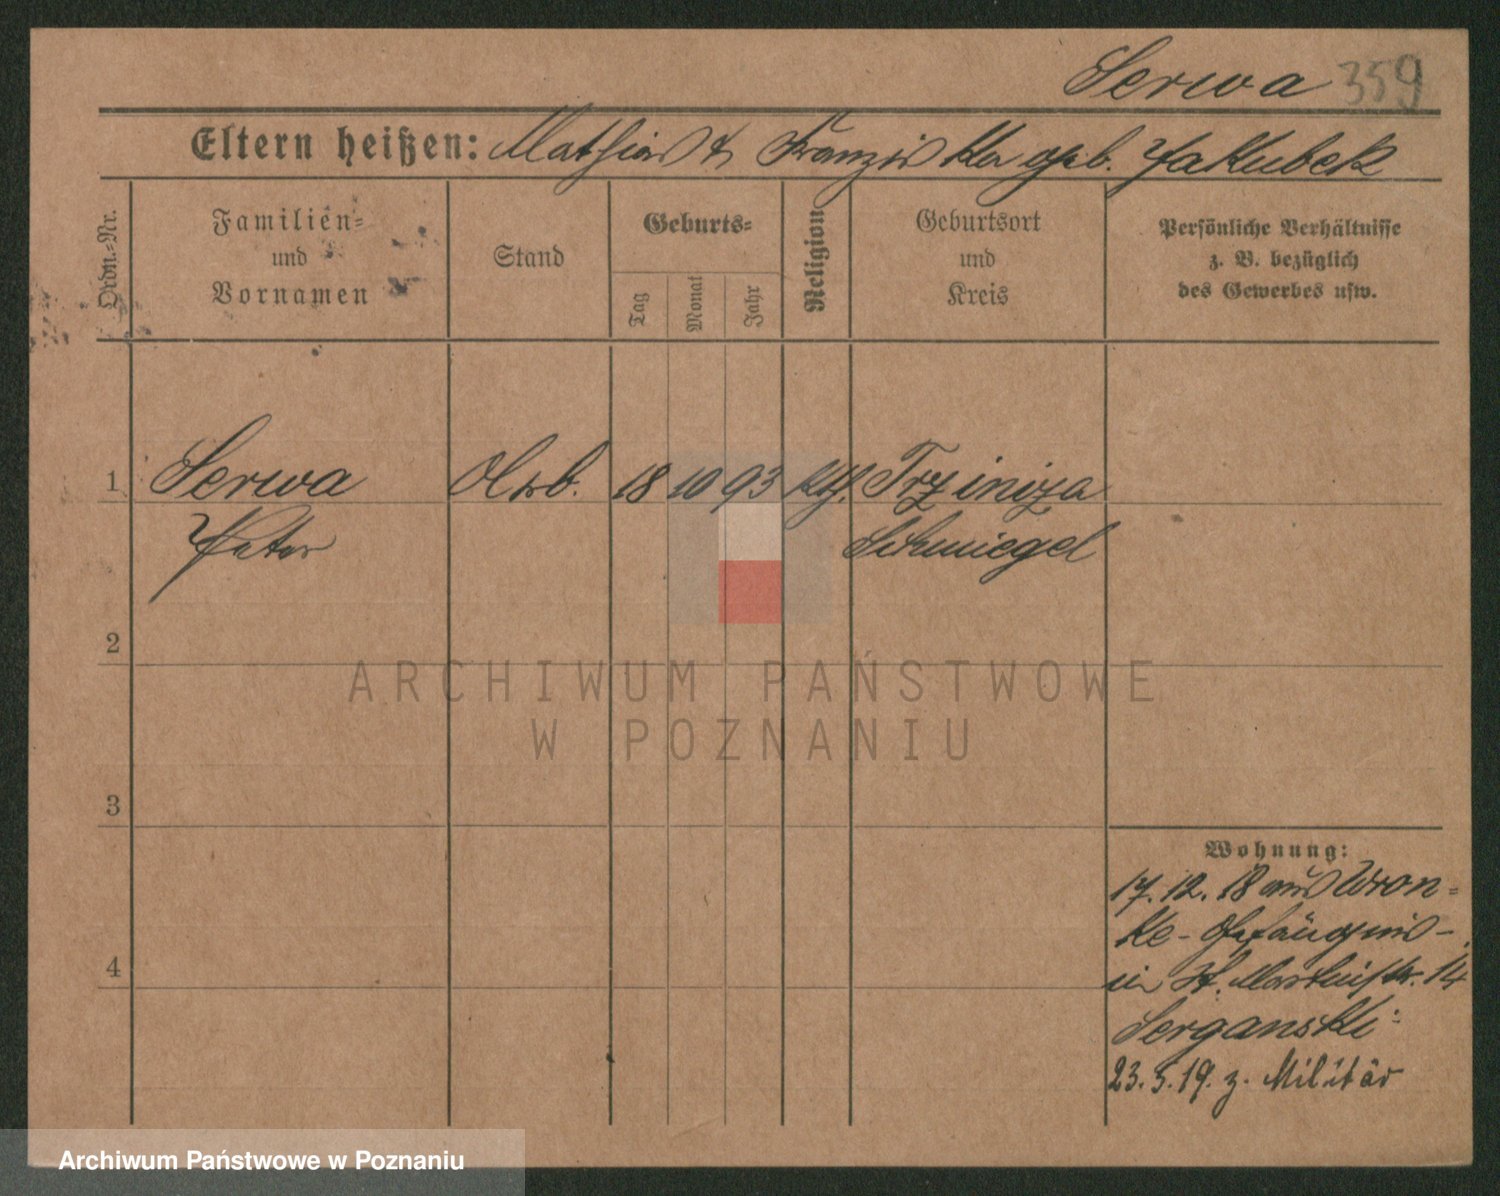 Serwa 359
Eltern heißen: Mathias & Franziska geb. Jakubek
Ordn.-Nr.
Familien-
und
Vornamen
Stand
Geburts-
Tag
Monat
Jahr
Religion
Geburtsort
und
Kreis
Persönliche Verhältnisse
z. B. bezüglich
des Gewerbes usw.
1 Serwa Arb. 18 10 93 kth. Trziniza
Peter Schmiegel
2
ARCHIWUM PAŃSTWOWE
W POZNANIU
3
Wohnung:
17.12.18 aus Wron-
ke-Gefängnis-
in St. Martinstr. 14
Serganski
4
23.5.19. z. Militär
Archiwum Państwowe w Poznaniu